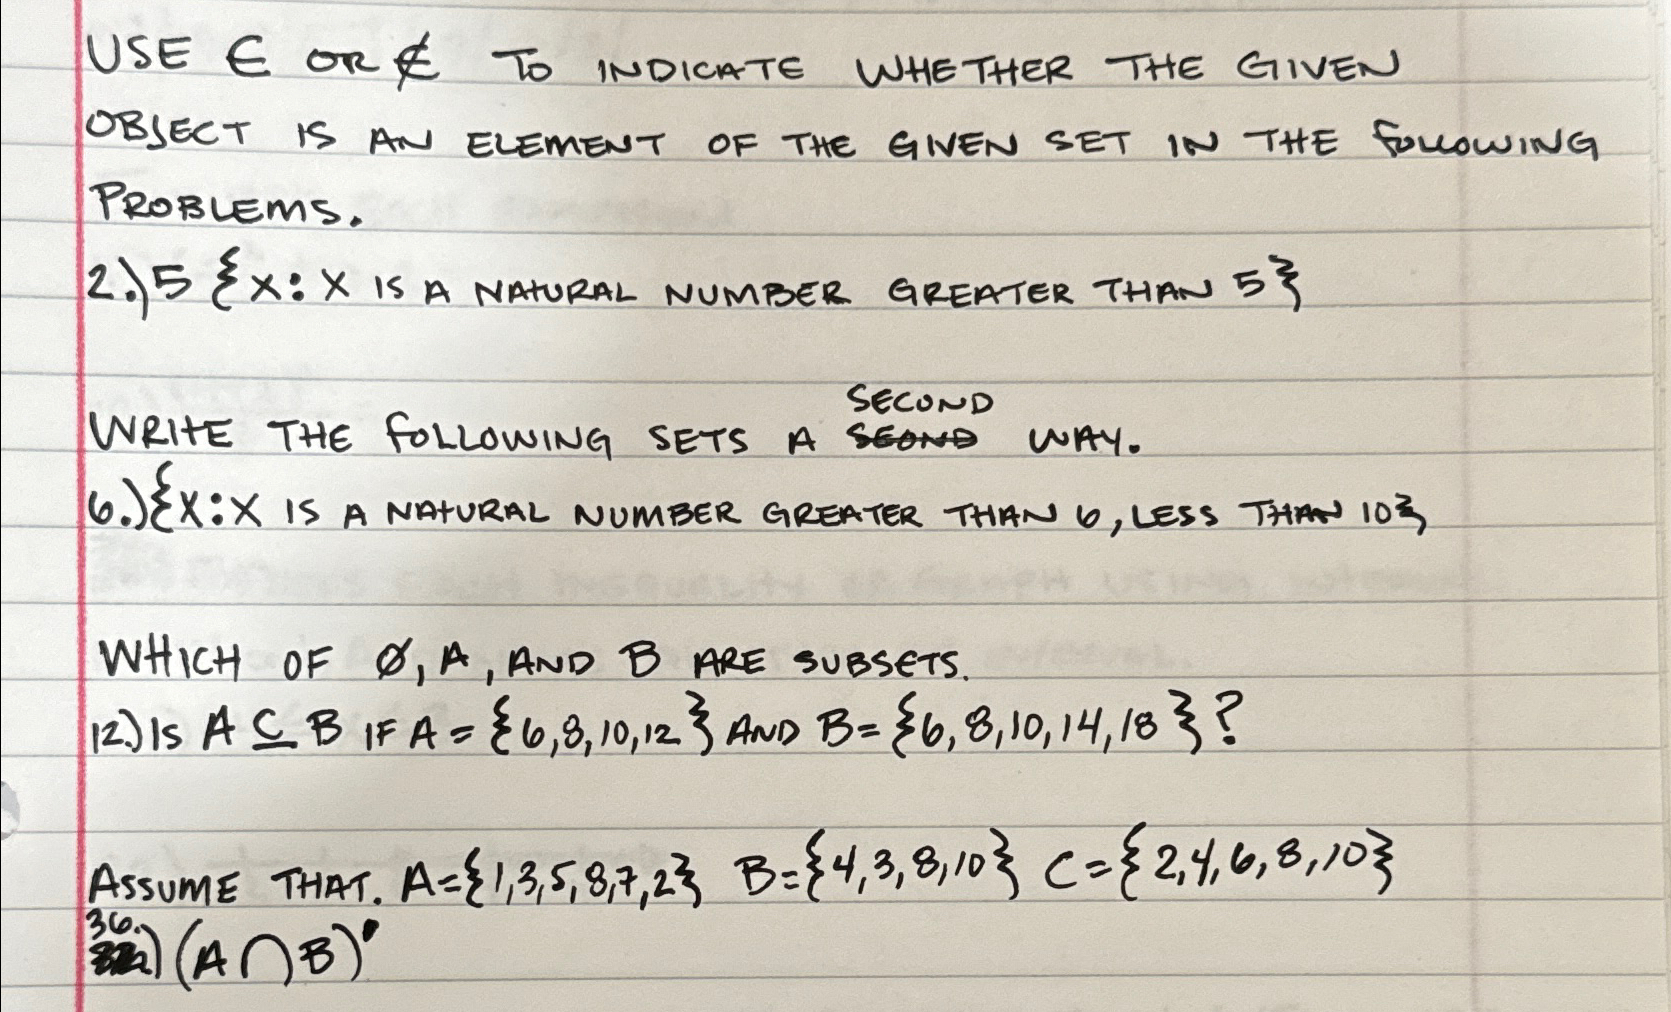 USE ∈ OR ∉ TO INDICATE WHETHER THE GIVEN
OBJECT IS AN ELEMENT OF THE GIVEN SET IN THE FOLLOWING
PROBLEMS.
2.) 5 {X: X IS A NATURAL NUMBER GREATER THAN 5}
SECOND
WRITE THE FOLLOWING SETS A SEOND WAY.
6.) {X: X IS A NATURAL NUMBER GREATER THAN 6, LESS THAN 10}
WHICH OF Ø, A, AND B ARE SUBSETS.
12.) IS A ⊆ B IF A = {6,8,10,12} AND B = {6,8,10,14,18}?
ASSUME THAT. A={1,3,5,8,7,2} B={4,3,8,10} C={2,4,6,8,10}
36.
) (A∩B)'